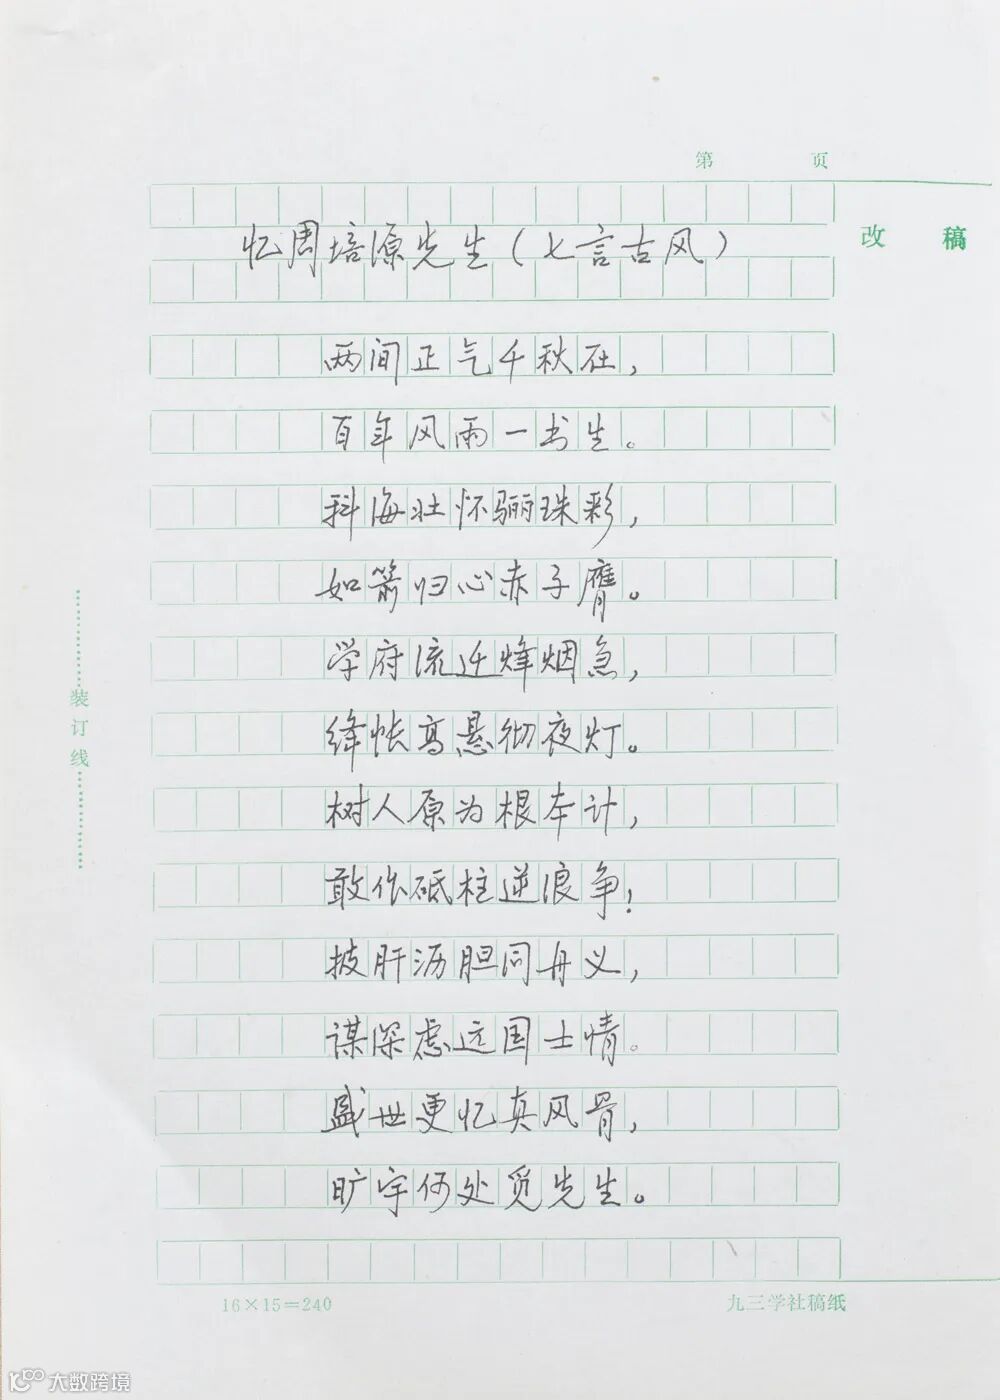 第 页
改 稿
忆周培源先生（七言古风）
两间正气千秋在，
百年风雨一书生。
科海壮怀骊珠彩，
如箭归心赤子膺。
学府流迁烽烟急，
绛帐高悬彻夜灯。
树人原为根本计，
敢作砥柱逆浪争！
披肝沥胆同舟义，
谋深虑远国士情。
盛世更忆真风骨，
旷宇何处觅先生。
装订线
16×15=240
九三学社稿纸
大数跨境